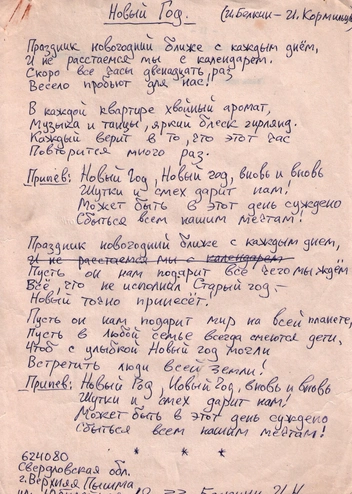 Новый Год.
(И. Белкин – И. Корминцев
Праздник новогодний ближе с каждым днём,
И не расстаемся мы с календарем.
Скоро все часы двенадцать раз
Весело пробьют для нас!
В каждой квартире хвойный аромат,
Музыка и танцы, яркий блеск гирлянд.
Каждый верит в то, что этот час
Повторится много раз.
Припев: Новый Год, Новый год, вновь и вновь
Шутки и смех дарит нам!
Может быть в этот день суждено
Сбыться всем нашим мечтам!
Праздник новогодний ближе с каждым днем,
И не расстаемся мы с календарем
Пусть он нам подарит всё чего мы ждём
Всё, что не исполнил Старый год –
Новый точно принесёт.
Пусть он нам подарит мир на всей планете,
Пусть в любой семье всегда смеются дети,
Чтоб с улыбкой Новый год могли
Встретить люди всей Земли!
Припев: Новый Год, Новый Год, вновь и вновь
Шутки и смех дарит нам!
Может быть в этот день суждено
Сбыться всем нашим мечтам!
* * *
624080
Свердловская обл.
г. Верхняя Пышма